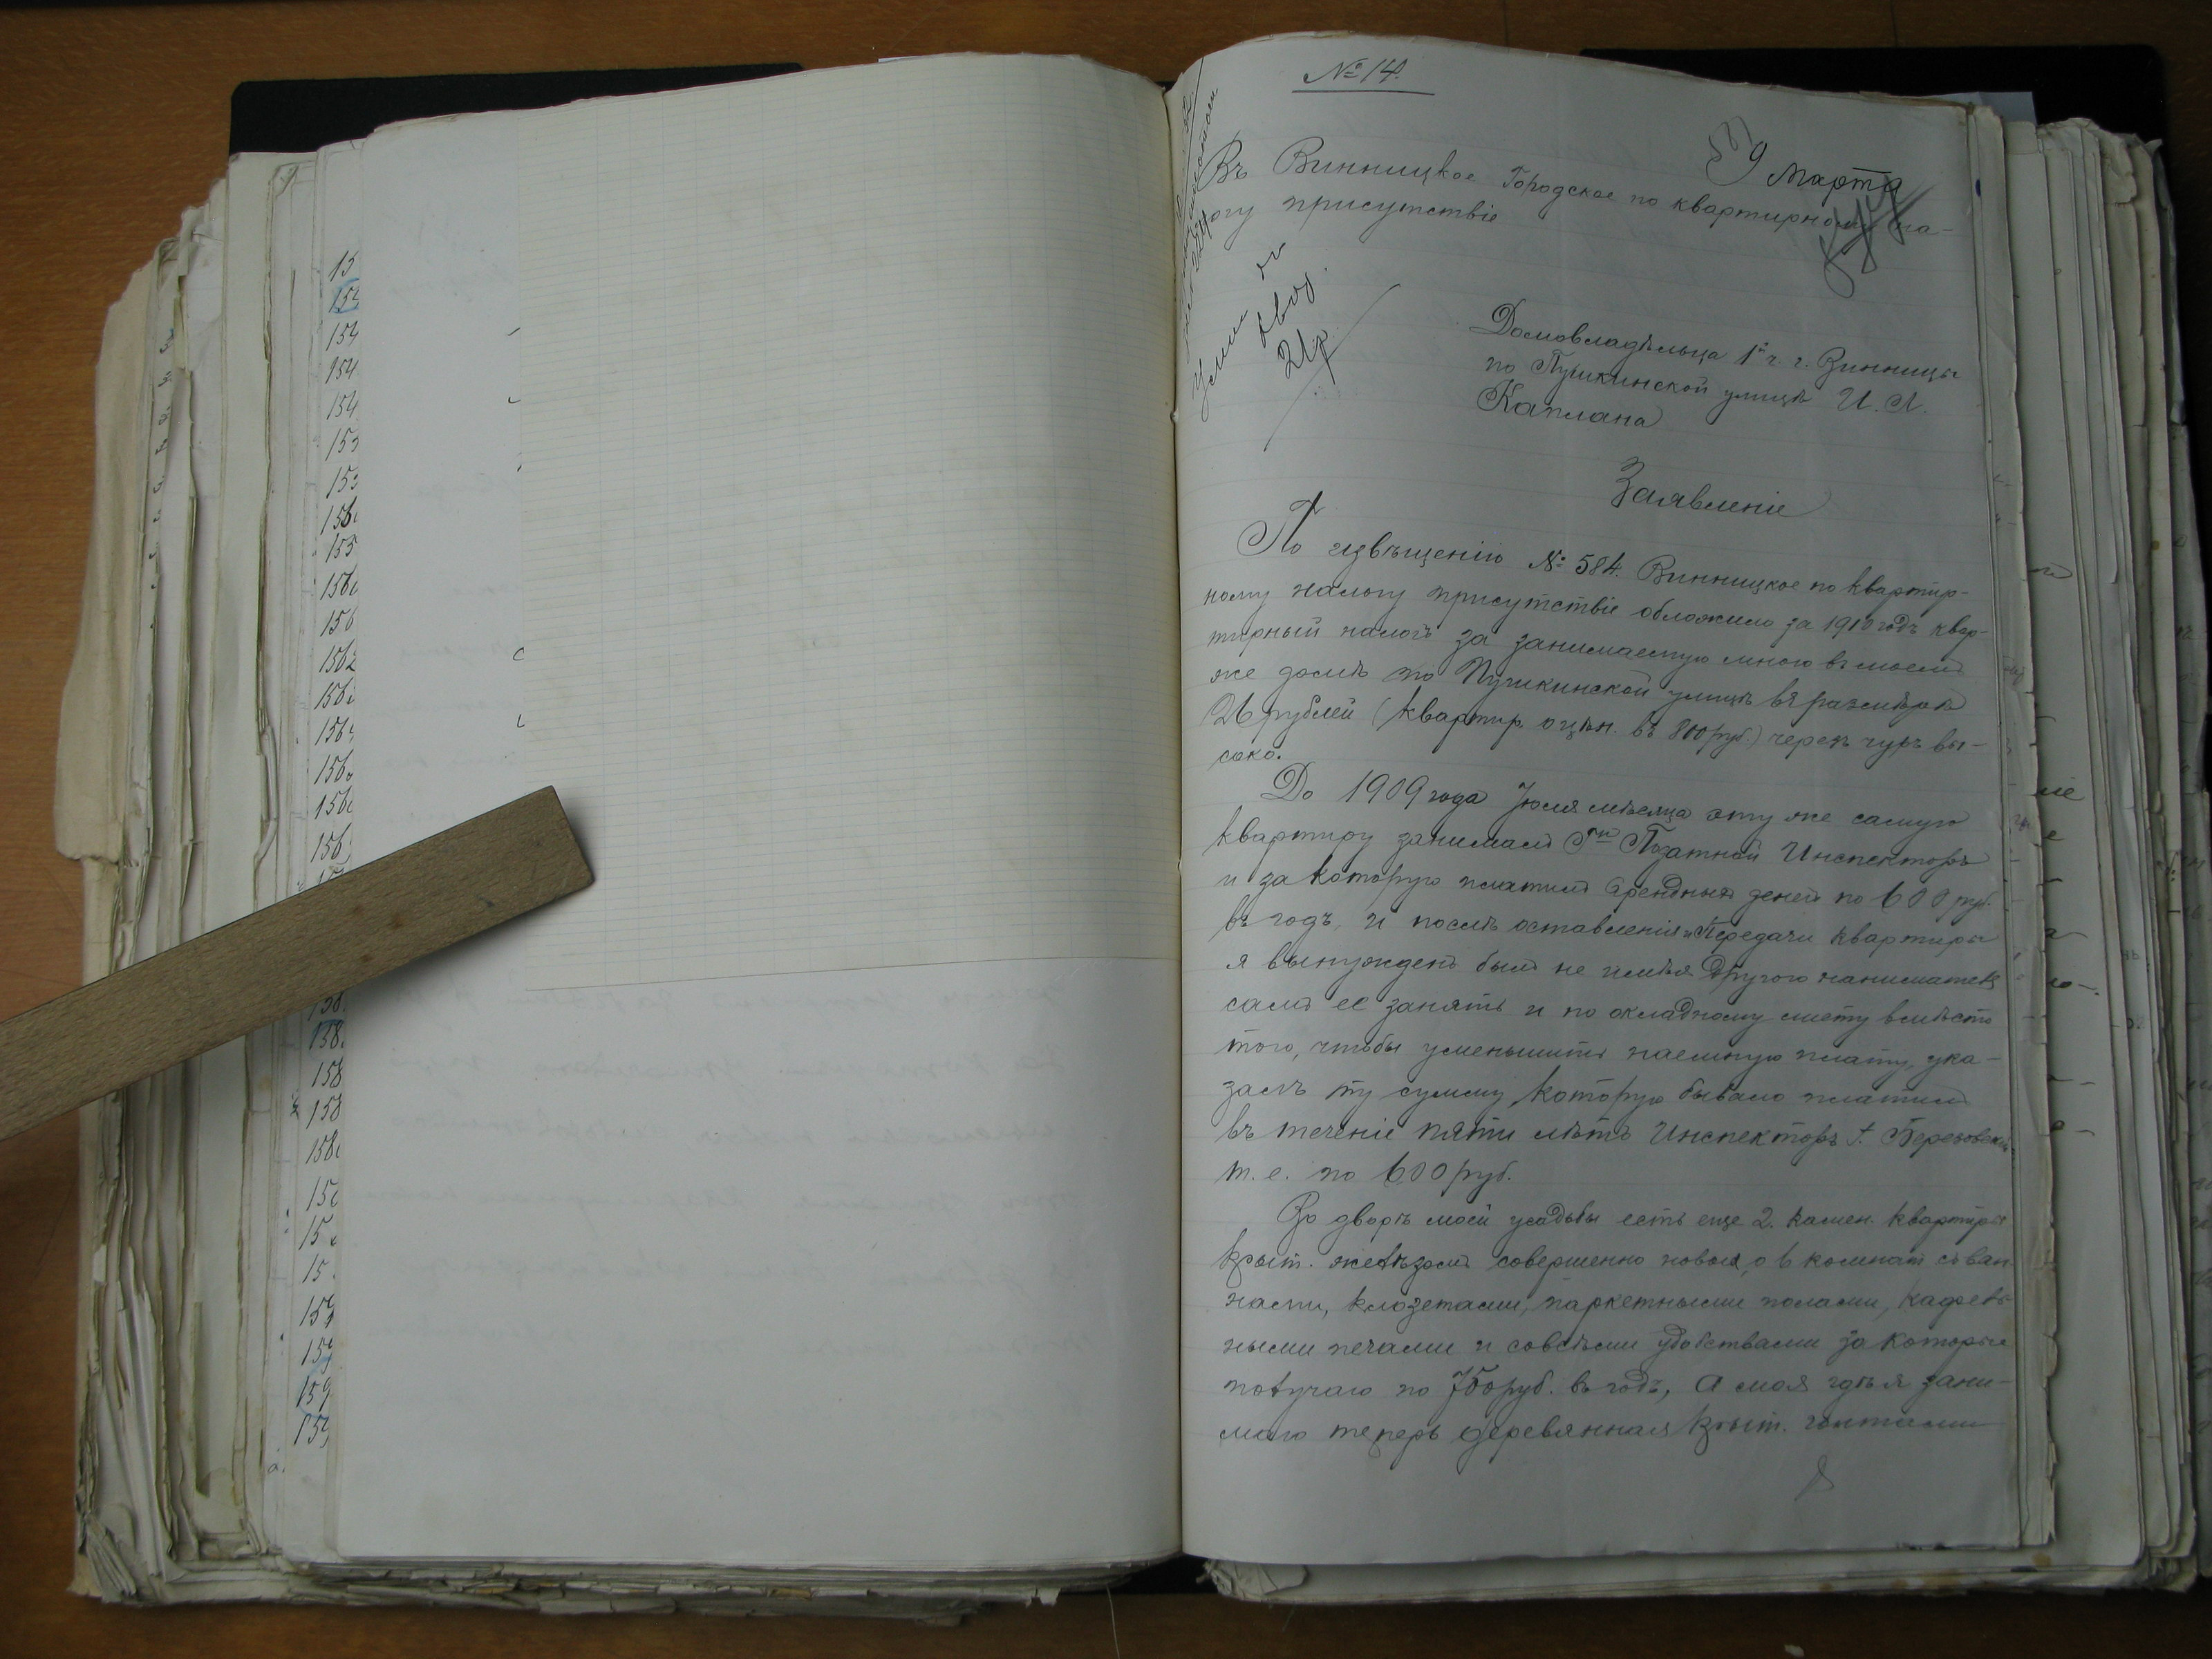 № 14.
9 Марта
Въ Винницкое Городское по квартирному на-
логу присутствіе
21р.
Домовладѣльца 1й ч г. Винницы
по Пушкинской улицѣ И. Л.
Каплана
Заявленіе
По извѣщенію № 584. Винницкое по квартир-
ному налогу присутствіе обложило за 1910 годъ квар-
тирный налогъ за занимаемую мною въ моемъ
же домѣ по Пушкинской улицѣ въ размѣрѣ
26 рублей (квартир. оцѣн. въ 800 руб.) черезъ чуръ вы-
соко.
До 1909 года Іюля мѣсяца эту же самую
квартиру занималъ Гнъ Податной Инспекторъ
и за которую платилъ арендныя денегъ по 600 руб.
въ годъ, и послѣ оставленія и передачи квартиры
я вынужденъ былъ не имѣя другого нанимателя
самъ ее занять и по окладному листу вмѣсто
того, чтобы уменьшить наемную плату, ука-
залъ ту сумму, которую бывало платилъ
въ теченіе пяти лѣтъ Инспекторъ г. Березовскій
т. е. по 600 руб.
Во дворѣ моей усадьбы есть еще 2. камен. квартиры
крыт. желѣзомъ совершенно новыя, о 6 комнат съ ван-
нами, клозетами, паркетными полами, кафель-
ными печами и со всѣми удобствами за которые
получаю по 750 руб. въ годъ, а моя гдѣ я зани-
маю теперь деревянная крыт. гонтами
15
154
154
154
156
156
1562
158
158
158
159